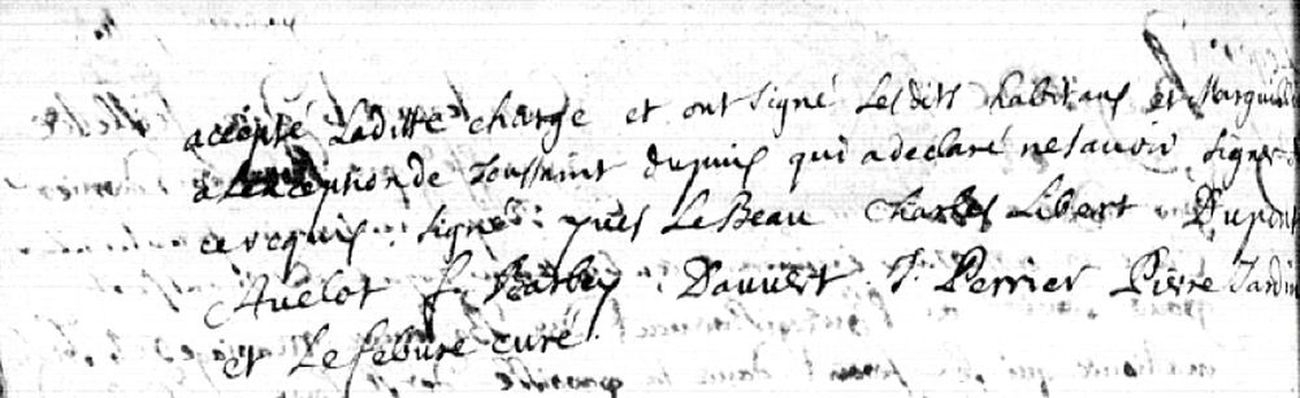 accepté Laditte charge et ont signé Lesdits habitans et Marguill
a Lexception de Toussaint dupuis qui a declaré ne savoir signer
ce requis. signé: Le Beau Charles Libert Dupont
Auelot f. Barbey Dauvert J. Perrier Pierre Jardin
et Lefebure curé.